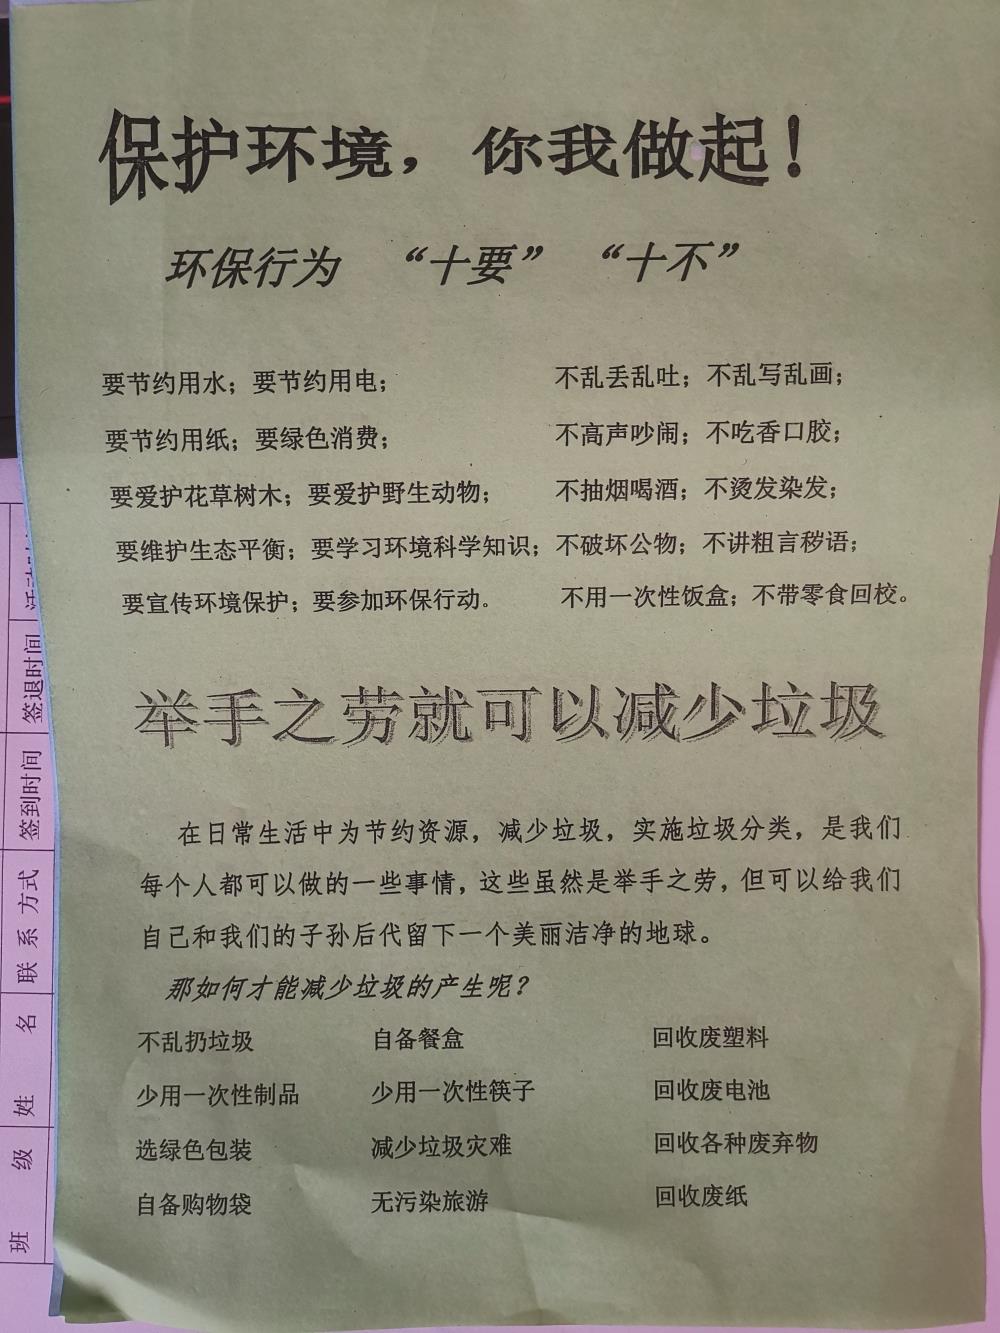 保护环境，你我做起！
环保行为 “十要” “十不”
要节约用水；要节约用电；
要节约用纸；要绿色消费；
要爱护花草树木；要爱护野生动物；
要维护生态平衡；要学习环境科学知识；
要宣传环境保护；要参加环保行动.
不乱丢乱吐；不乱写乱画；
不高声吵闹；不吃香口胶；
不抽烟喝酒；不烫发染发；
不破坏公物；不讲粗言秽语；
不用一次性饭盒；不带零食回校。
举手之劳就可以减少垃圾
在日常生活中为节约资源，减少垃圾，实施垃圾分类，是我们
每个人都可以做的一些事情，这些虽然是举手之劳，但可以给我们
自己和我们的子孙后代留下一个美丽洁净的地球。
那如何才能减少垃圾的产生呢？
不乱扔垃圾 自备餐盒 回收废塑料
少用一次性制品 少用一次性筷子 回收废电池
选绿色包装 减少垃圾灾难 回收各种废弃物
自备购物袋 无污染旅游 回收废纸
班级
姓名
联系方式
签到时间
签退时间